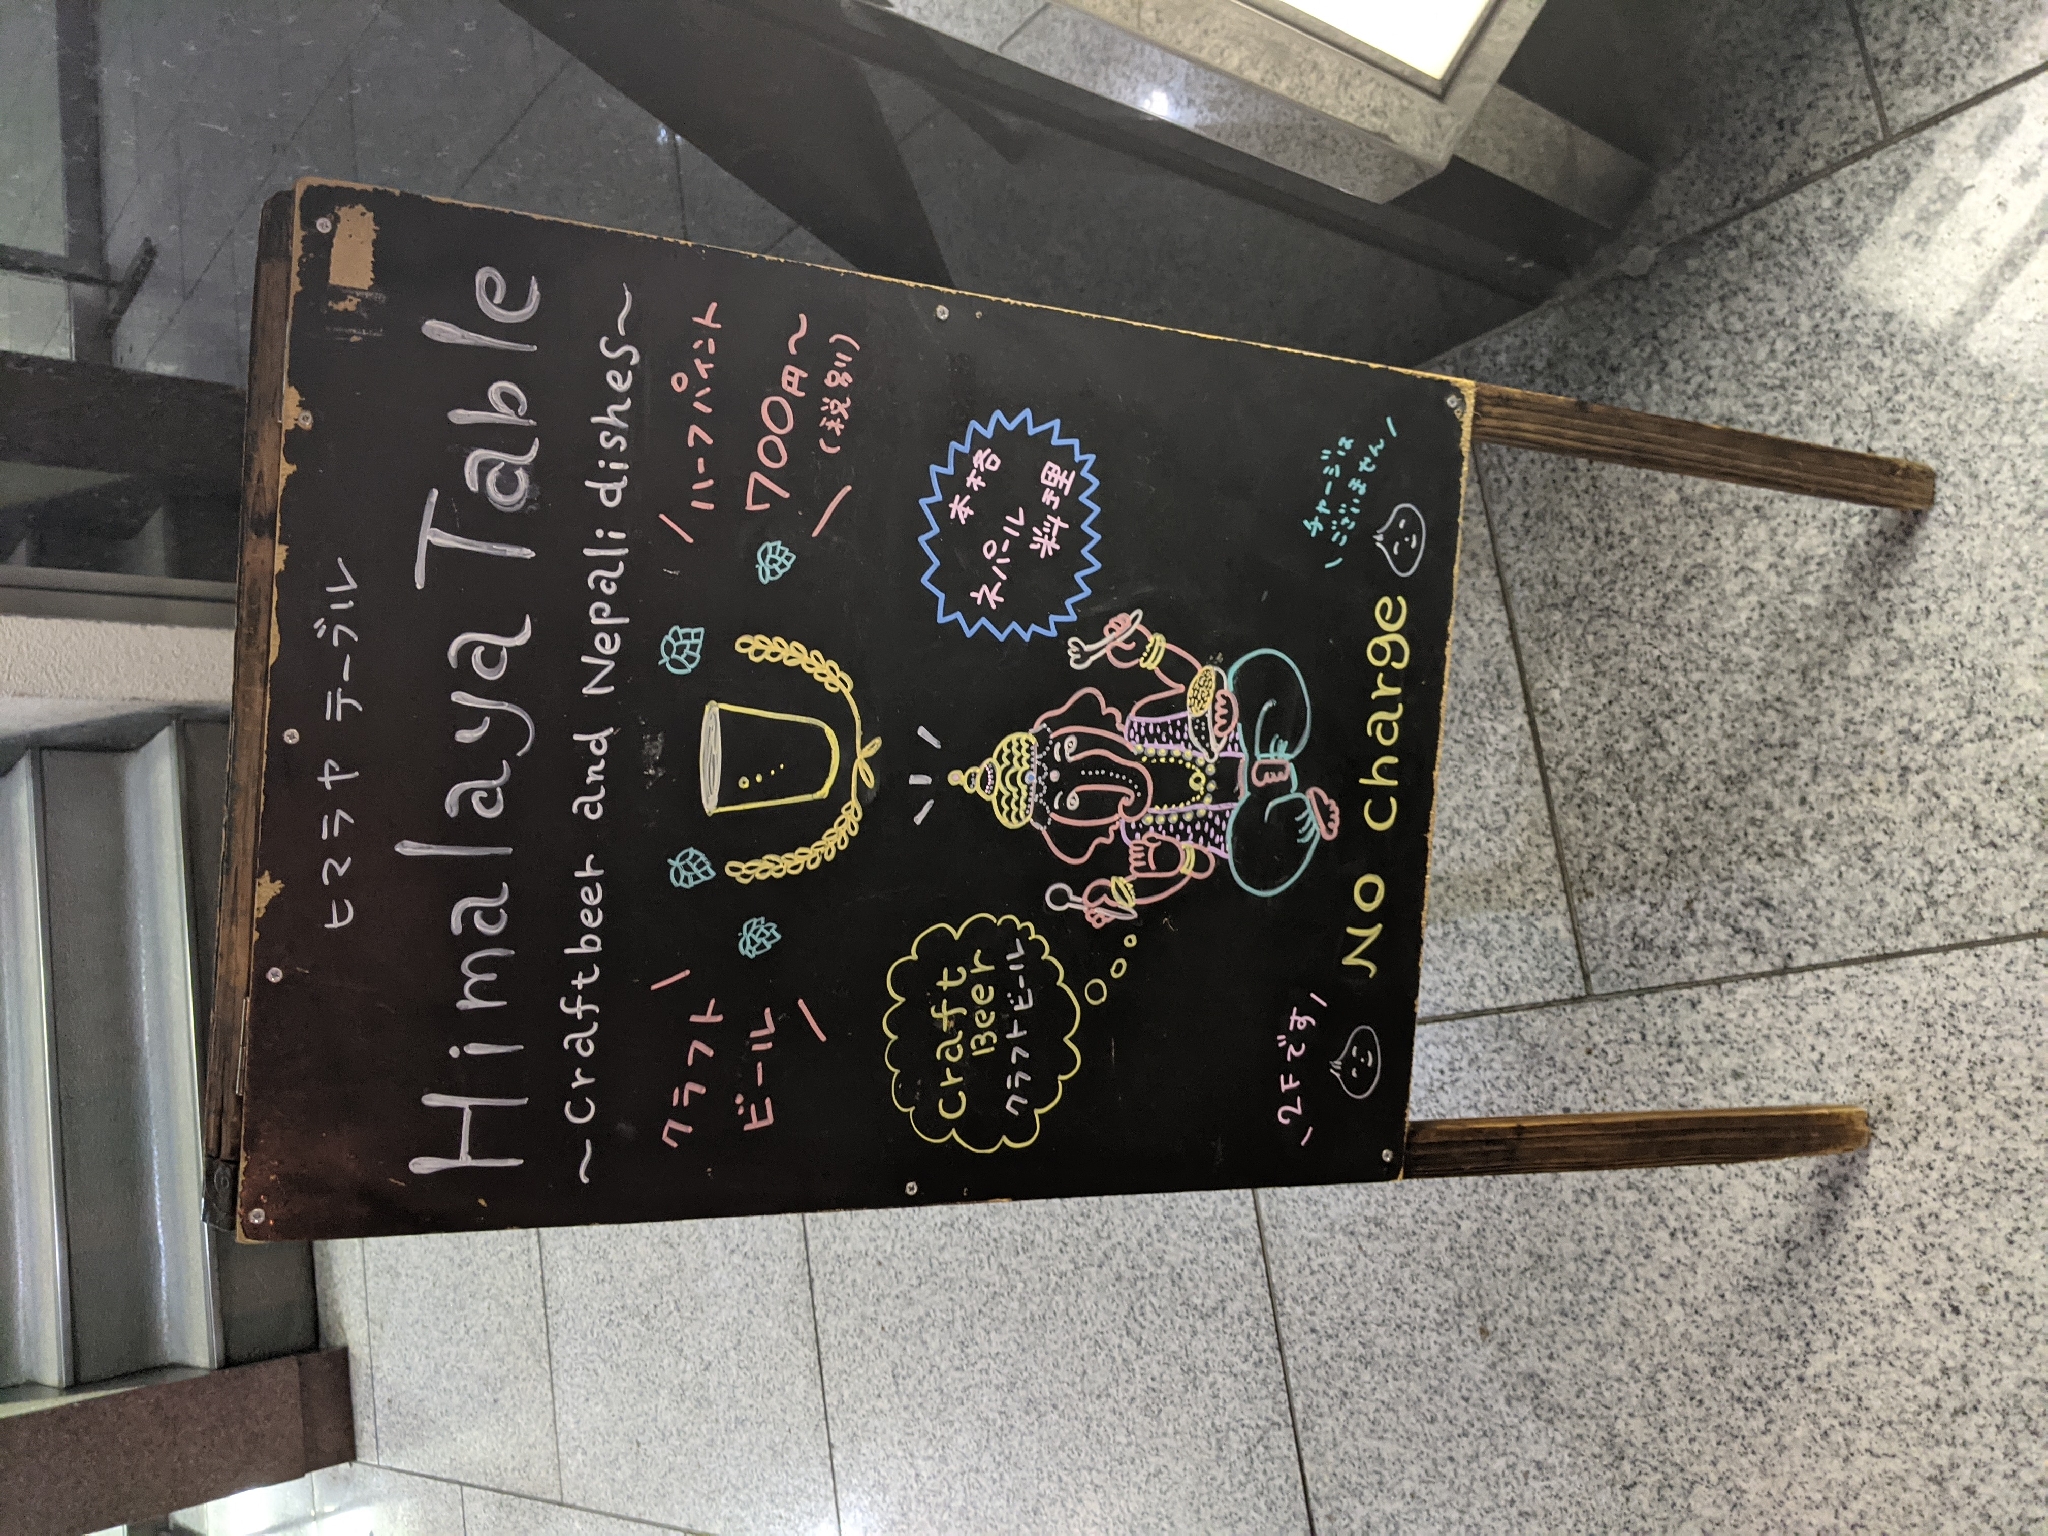 ヒマラヤ テーブル
Himalaya Table
~Craftbeer and Nepali dishes~
クラフト
ビール
ハーフパイント
700円~
(税別)
Craft
Beer
クラフトビール
本格
ネパール
料理
2Fです
No charge
チャージは
ございません